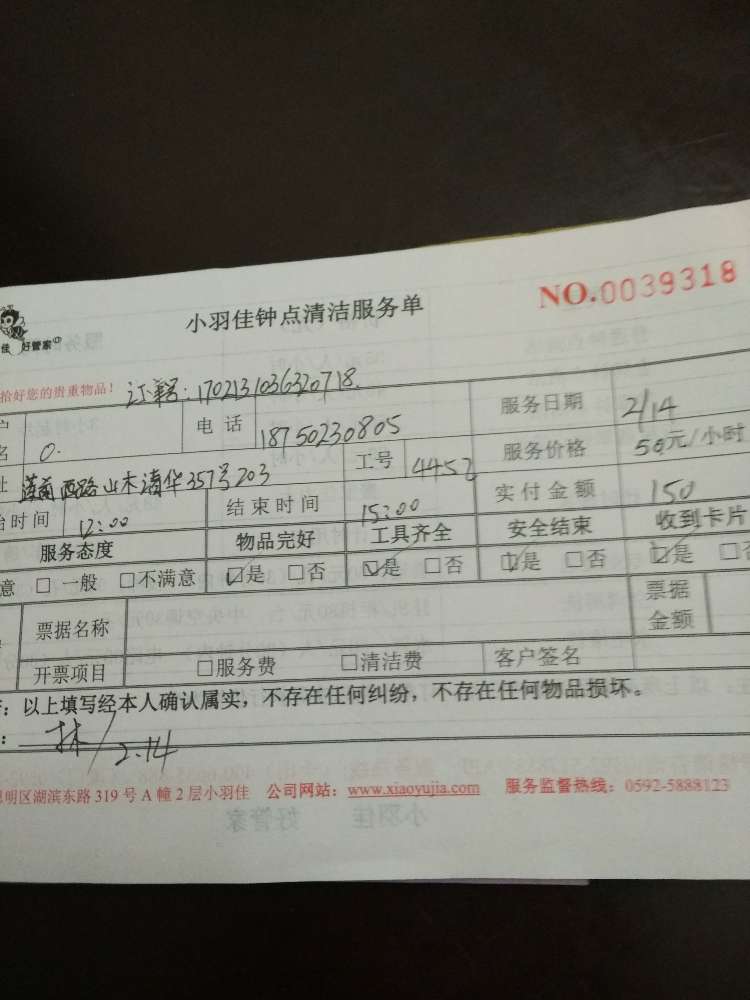 NO.0039318
小羽佳钟点清洁服务单
佳 好管家
拾好您的贵重物品！
订单号：1702131036320718.
户名 电话 18750230805 服务日期 2/14
址 莲前西路山木清华357号203 工号 4452 服务价格 50元/小时
始时间 12:00 结束时间 15:00 实付金额 150
服务态度 物品完好 工具齐全 安全结束 收到卡片
意 □一般 □不满意 ☑是 □否 ☑是 □否 ☑是 □否 ☑是 □否
票据名称 票据金额
开票项目 □服务费 □清洁费 客户签名
：以上填写经本人确认属实，不存在任何纠纷，不存在任何物品损坏。
：林 2.14
思明区湖滨东路319号A幢2层小羽佳 公司网站：www.xiaoyujia.com 服务监督热线：0592-5888123